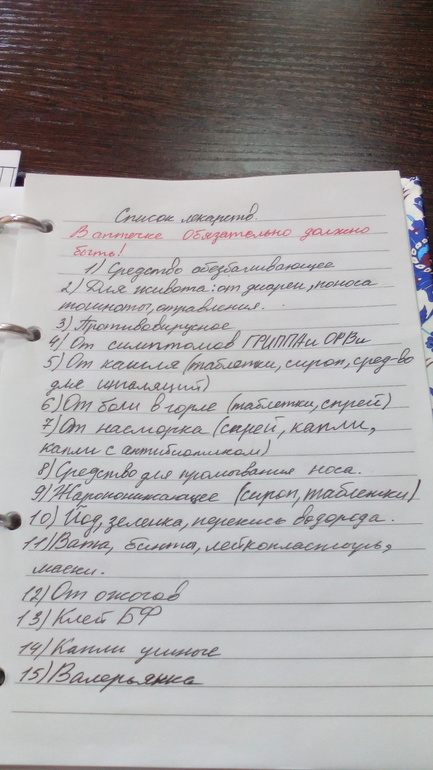 Список лекарств.
В аптечке обязательно должно
быть!
1) Средство обезбаливающее
2) Для живота: от диареи, поноса
тошноты, отравления.
3) Противовирусное
4) От симптомов ГРИППА и ОРВи
5) От кашля (таблетки, сироп, сред-во
для ингаляций)
6) От боли в горле (таблетки, спрей)
7) От насморка (спрей, капли,
капли с антибиотиком)
8) Средство для промывания носа.
9) Жаропонижающее (сироп, таблетки)
10) Йод, зеленка, перекись водорода.
11) Вата, бинты, лейкопластырь,
маски.
12) От ожогов
13) Клей БФ
14) Капли ушные
15) Валерьянка